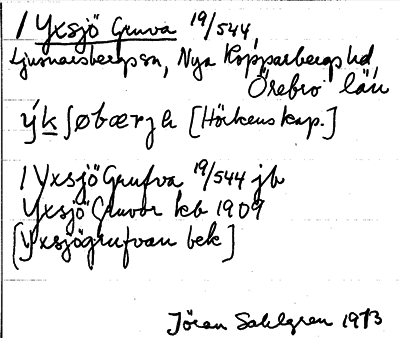 / Yxsjö Gruva 19/544,
Ljusnarsbergs sn, Nya Kopparbergs hd,
Örebro län
ýkʃøbærjh [Hörkens kap.]
/ Yxsjö Grufva 19/544 jb
Yxsjö Gruvor kb 1909
[Yxsjögrufvan bek]
Jöran Sahlgren 1913